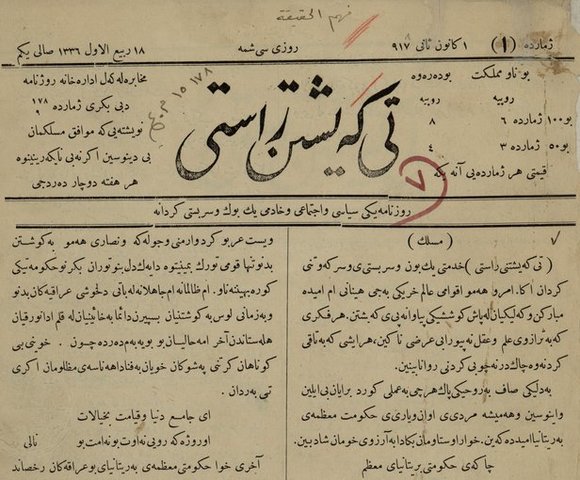 فهم الحقيقة
ژمارده (١)
١ كانون ثانى ٩١٧
روژى سى شمه
١٨ ربيع الاول ١٣٣٦ صالى يكم
بو ناو مملكت بوده‌ره‌وه
روپيه روپيه
بو ١٠٠ ژمارده ٦ ٨
بو ٥٠ ژمارده ٣ ٤
قيمتى هر ژمارده بى آنه يكه
٧
تى كه يشتن راستى
١٧٨ ١٥
مخابره له كل اداره خانه روژنامه
دبى بكرى ژمارده ١٧٨
نوشته يى كه موافق مسلكمان
بى دينوسين اكر نه بى نايكه رينينوه
هر هفته دو چار ده ردجى
روزنامه يكى سياسى و اجتماعى و خادمى يك بوك و سربستى كردانه
( مسلك )
( تى كه يشتنى راستى ) خدمتى يك بون و سربستى و سركه وتنى
كردان اكا. امرو همو اقوامى عالم خريكى به جى هينانى ام اميده
مباركن و كه ليكيان له پاش كوششيكى پياوانه پى كه يشتن. هر فكرى
كه به ترازوى علم و عقل نه يبورابى عرضى نا كين، هر ايشى كه به ناقى
كردنه وه چاك در نه چوبى كردنى روانابينين.
به دليكى صاف به روحيكى پاك هرچى به عملى كورد برايان بى ايلين
واينوسين و هميشه مردى اوان و يارى حكومت معظمه ى
به ريتانيا اميده كه ين. خوا راستاومان بكا دابه آرزوى خومان شاد ببين.
چاكه ى حكومتى بريتانياى معظم
ويست عربو كرد و ارمنى و جوله كه و نصارى همو به كوشتن
بدنو تنها قومى تورك بمينيتوه دابه لك دل بنو توران بكر نو حكومه تيكى
كوره بهيننه ناو. ام ظالمانه ام جاهلانه له پانى دلخوشى عراقيه كان بدنو
و به زمانى لوس به كوشتنيان بسپيرن دائما به خائنيان له قلم ادا نو رقيان
هله ستاندن آخر امه حاليان بو بويه به م دهرده چون. خوينى بى
كوناهان كرتنى په شوكان خويان به فتادا هه ناسه ى مظلومان اكرى
تى به ردان.
اى جامع دنيا و قيامت بخيالات
او روژه كه رويى نه اوت بو نه امت بو نالى
آخرى خوا حكومتى معظمه ى به ريتانياى بو عراقه كان رخصاند